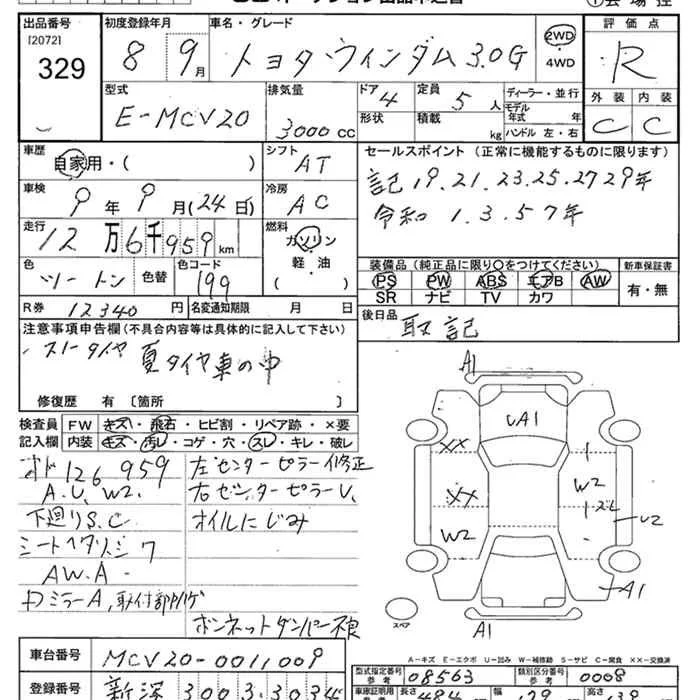 出品番号 初度登録年月 車名・グレード 評価点
[2072]
329
8 9月 トヨタ ウィンダム 3.0G 2WD R
4WD
型式 排気量 ドア 4 定員 5人 ディーラー・並行 外装 内装
E-MCV20 3000cc 形状 積載 kg モデル年式 年 C C
ハンドル 左・右
車歴 自家用・( ) シフト AT セールスポイント (正常に機能するものに限ります)
車検 9年9月(24日) 冷房 AC 記19.21.23.25.27 29年
走行 12万6千959km 燃料 ガソリン 令和 1.3.5 7年
軽・油
( )
色 ツートン 色替 色コード 199 装備品(純正品に限り○をつけてください) 新車保証書
PS PW ABS エアB AW 有・無
SR ナビ TV カワ
R券 12340円 名変通知期限 月 日 後日品 取 記
注意事項申告欄(不具合内容等は具体的に記入して下さい)
スノータイヤ 夏タイヤ車の中
修復歴 有〔箇所 〕
検査員記入欄 FW キズ・飛石・ヒビ割・リペア跡・×要
内装 キズ・汚レ・コゲ・穴・スレ・キレ・破レ
126959 左センターピラー修正
A.U、W2. 右センターピラーU、
下廻りS.C オイルにじみ
シートヘタリ
AW.A
ドミラーA、取付部
ボンネットダンパー不良
A1
UA1
XX
XX W2
W2 U2
A1
A1
スペア
A-キズ E-エクボ U-凹み W-補修跡 S-サビ C-腐食 XX-交換済
車台番号 MCV20-0011009
型式指定番号 参考 08563 類別区分番号 参考 0008
登録番号 新潟 300 3.3034
車庫証明用 長さ 484 幅 179 高さ 139